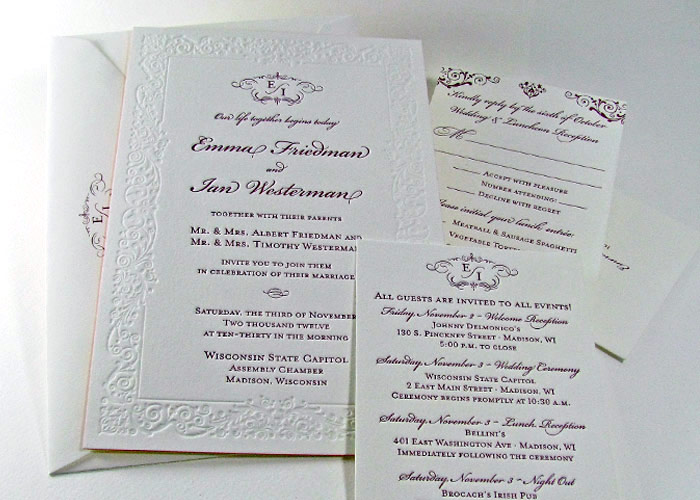 E I
Our life together begins today
Emma Friedman
and
Ian Westerman
TOGETHER WITH THEIR PARENTS
MR. & MRS. ALBERT FRIEDMAN AND
MR. & MRS. TIMOTHY WESTERMAN
INVITE YOU TO JOIN THEM
IN CELEBRATION OF THEIR MARRIAGE
SATURDAY, THE THIRD OF NOVEMBER
TWO THOUSAND TWELVE
AT TEN-THIRTY IN THE MORNING
WISCONSIN STATE CAPITOL
ASSEMBLY CHAMBER
MADISON, WISCONSIN
E I
Kindly reply by the sixth of October
Wedding & Luncheon Reception
M
ACCEPT WITH PLEASURE
NUMBER ATTENDING:
DECLINE WITH REGRET
Please initial your lunch entrée:
MEATBALL & SAUSAGE SPAGHETTI
VEGETABLE
E I
ALL GUESTS ARE INVITED TO ALL EVENTS!
Friday, November 2 - Welcome Reception
JOHNNY DELMONICO'S
130 S. PINCKNEY STREET · MADISON, WI
5:00 P.M. TO CLOSE
Saturday, November 3 - Wedding Ceremony
WISCONSIN STATE CAPITOL
2 EAST MAIN STREET · MADISON, WI
CEREMONY BEGINS PROMPTLY AT 10:30 A.M.
Saturday, November 3 - Lunch Reception
BELLINI'S
401 EAST WASHINGTON AVE · MADISON, WI
IMMEDIATELY FOLLOWING THE CEREMONY
Saturday, November 3 - Night Out
BROCACH'S IRISH PUB